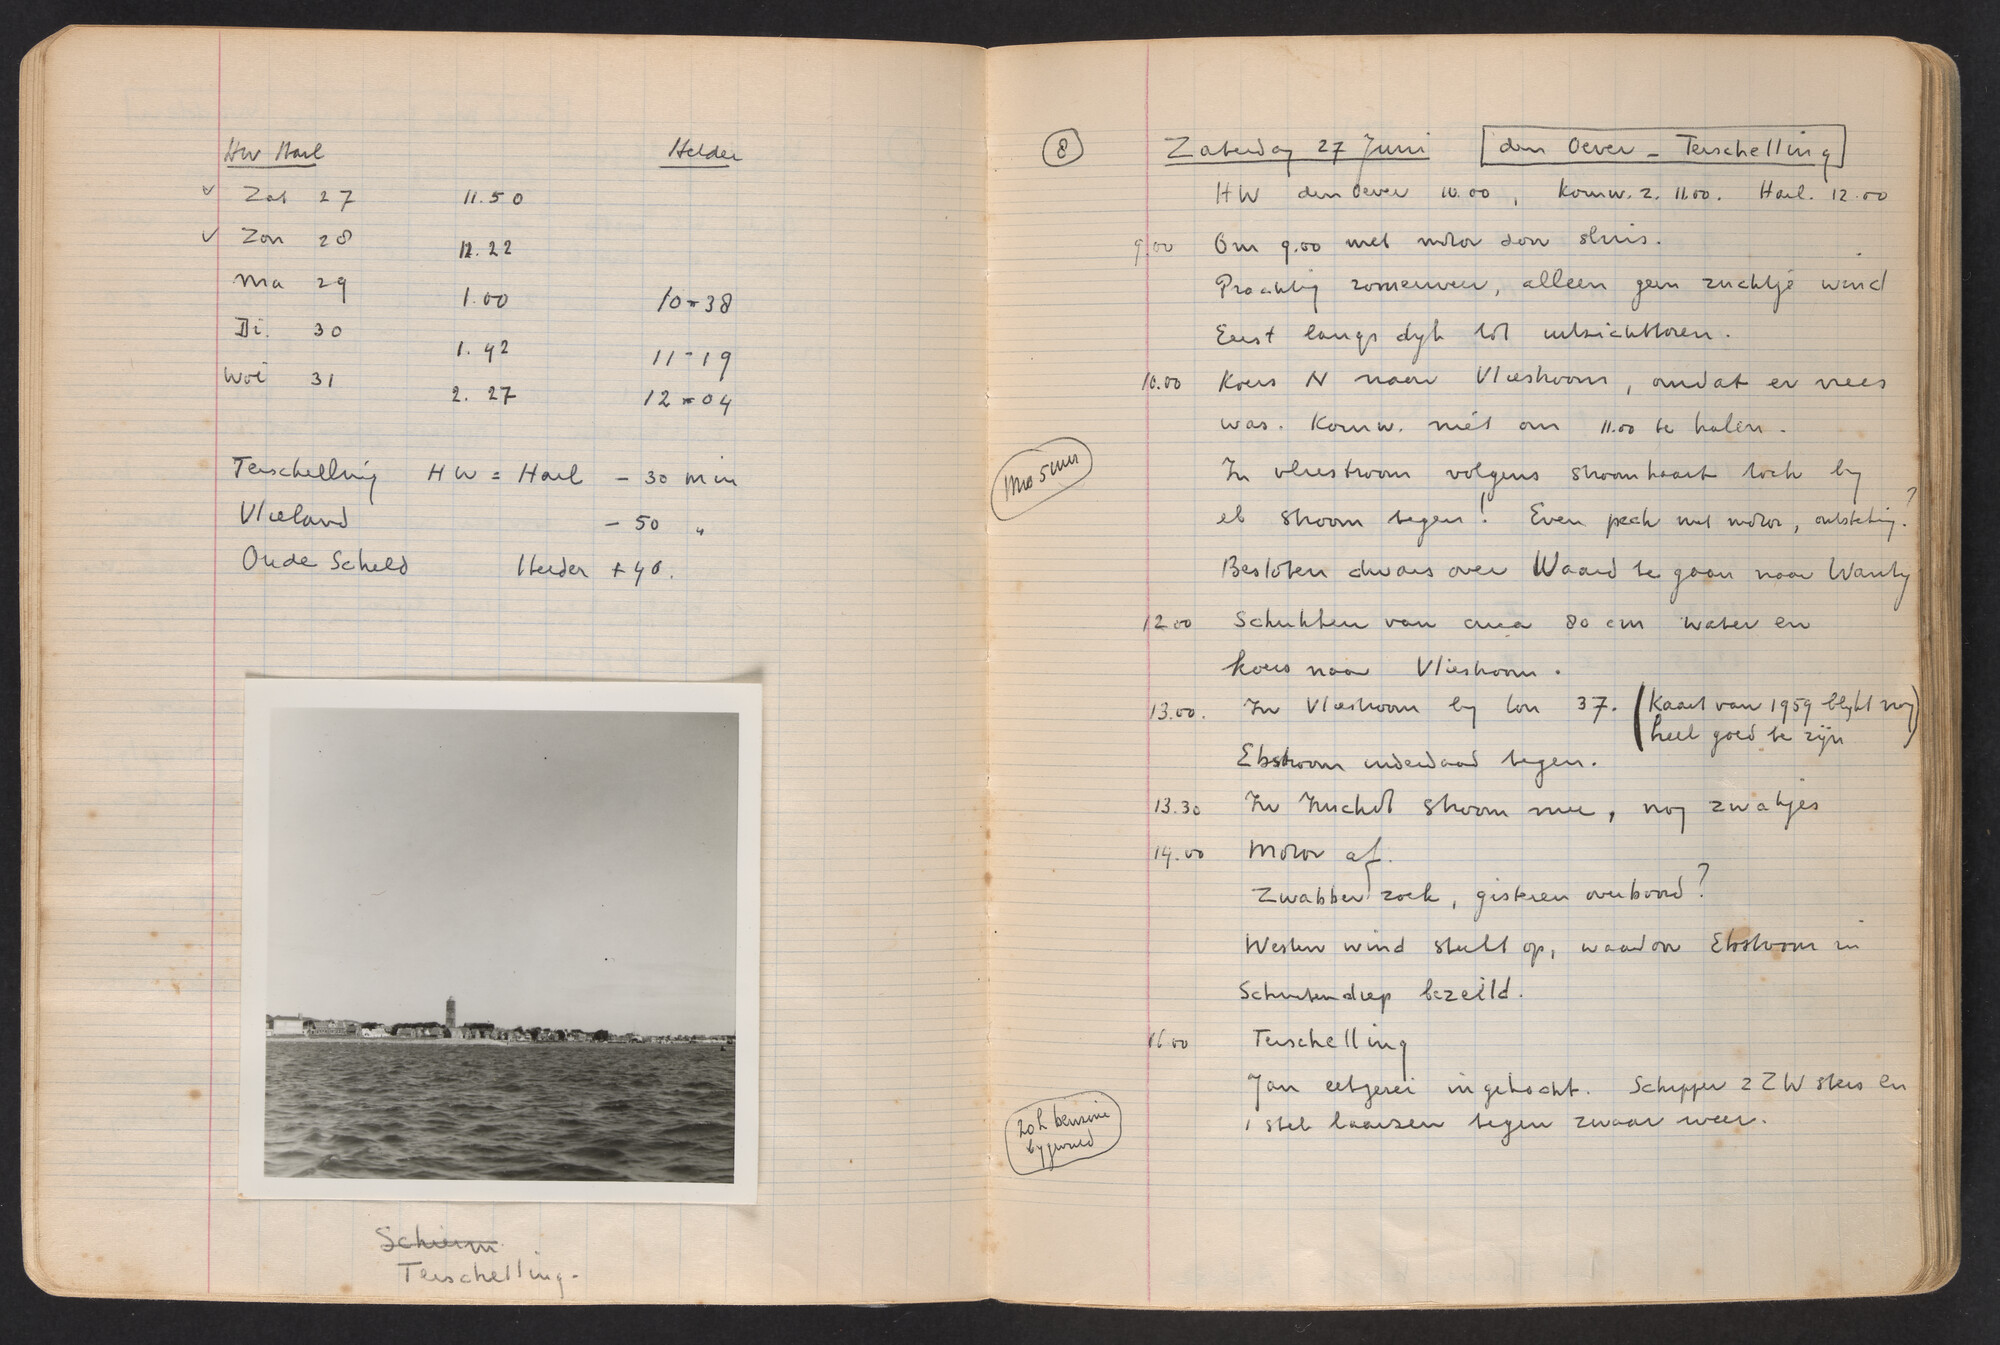 HW Harl Helder
Zat 27 11.50
Zon 28 12.22
Ma 29 1.00 10-38
Di. 30 1.42 11-19
Woe 31 2.27 12-04
Terschelling HW = Harl - 30 min
Vlieland - 50 "
Oude Scheld Helder + 40.
Schierm
Terschelling.
8 Zaterdag 27 Juni den Oever - Terschelling
HW den Oever 10.00, Kornw. z. 11.00. Harl. 12.00
9.00 Om 9.00 met motor door sluis.
Prachtig zomerweer, alleen geen zuchtje wind
Eerst langs dijk tot uitzichttoren.
10.00 Koers N naar Vliestroom, omdat er vrees
was. Kornw. niet om 11.00 te halen.
Mo 5 uur
In vliestroom volgens stroomkaart toch bij
eb stroom tegen! Even pech met motor, ontsteking?
Besloten dwars over Waard te gaan naar Wantij
12.00 Schuitten van circa 80 cm water en
koers naar Vliestroom.
13.00. In Vliestroom bij ton 37. (Kaart van 1959 blijkt nog
heel goed te zijn)
Ebstroom inderdaad tegen.
13.30 In Inschot stroom mee, nog zwakjes
14.00 Motor af.
Zwabber zoek, gisteren overboord?
Westen wind steekt op, waardoor Ebstroom in
Schuitendiep bezeild.
16.00 Terschelling
Jan eetgerei ingekocht. Schipper 2 ZW sters en
1 stel laarzen tegen zwaar weer.
20 L benzine
bijgevuld